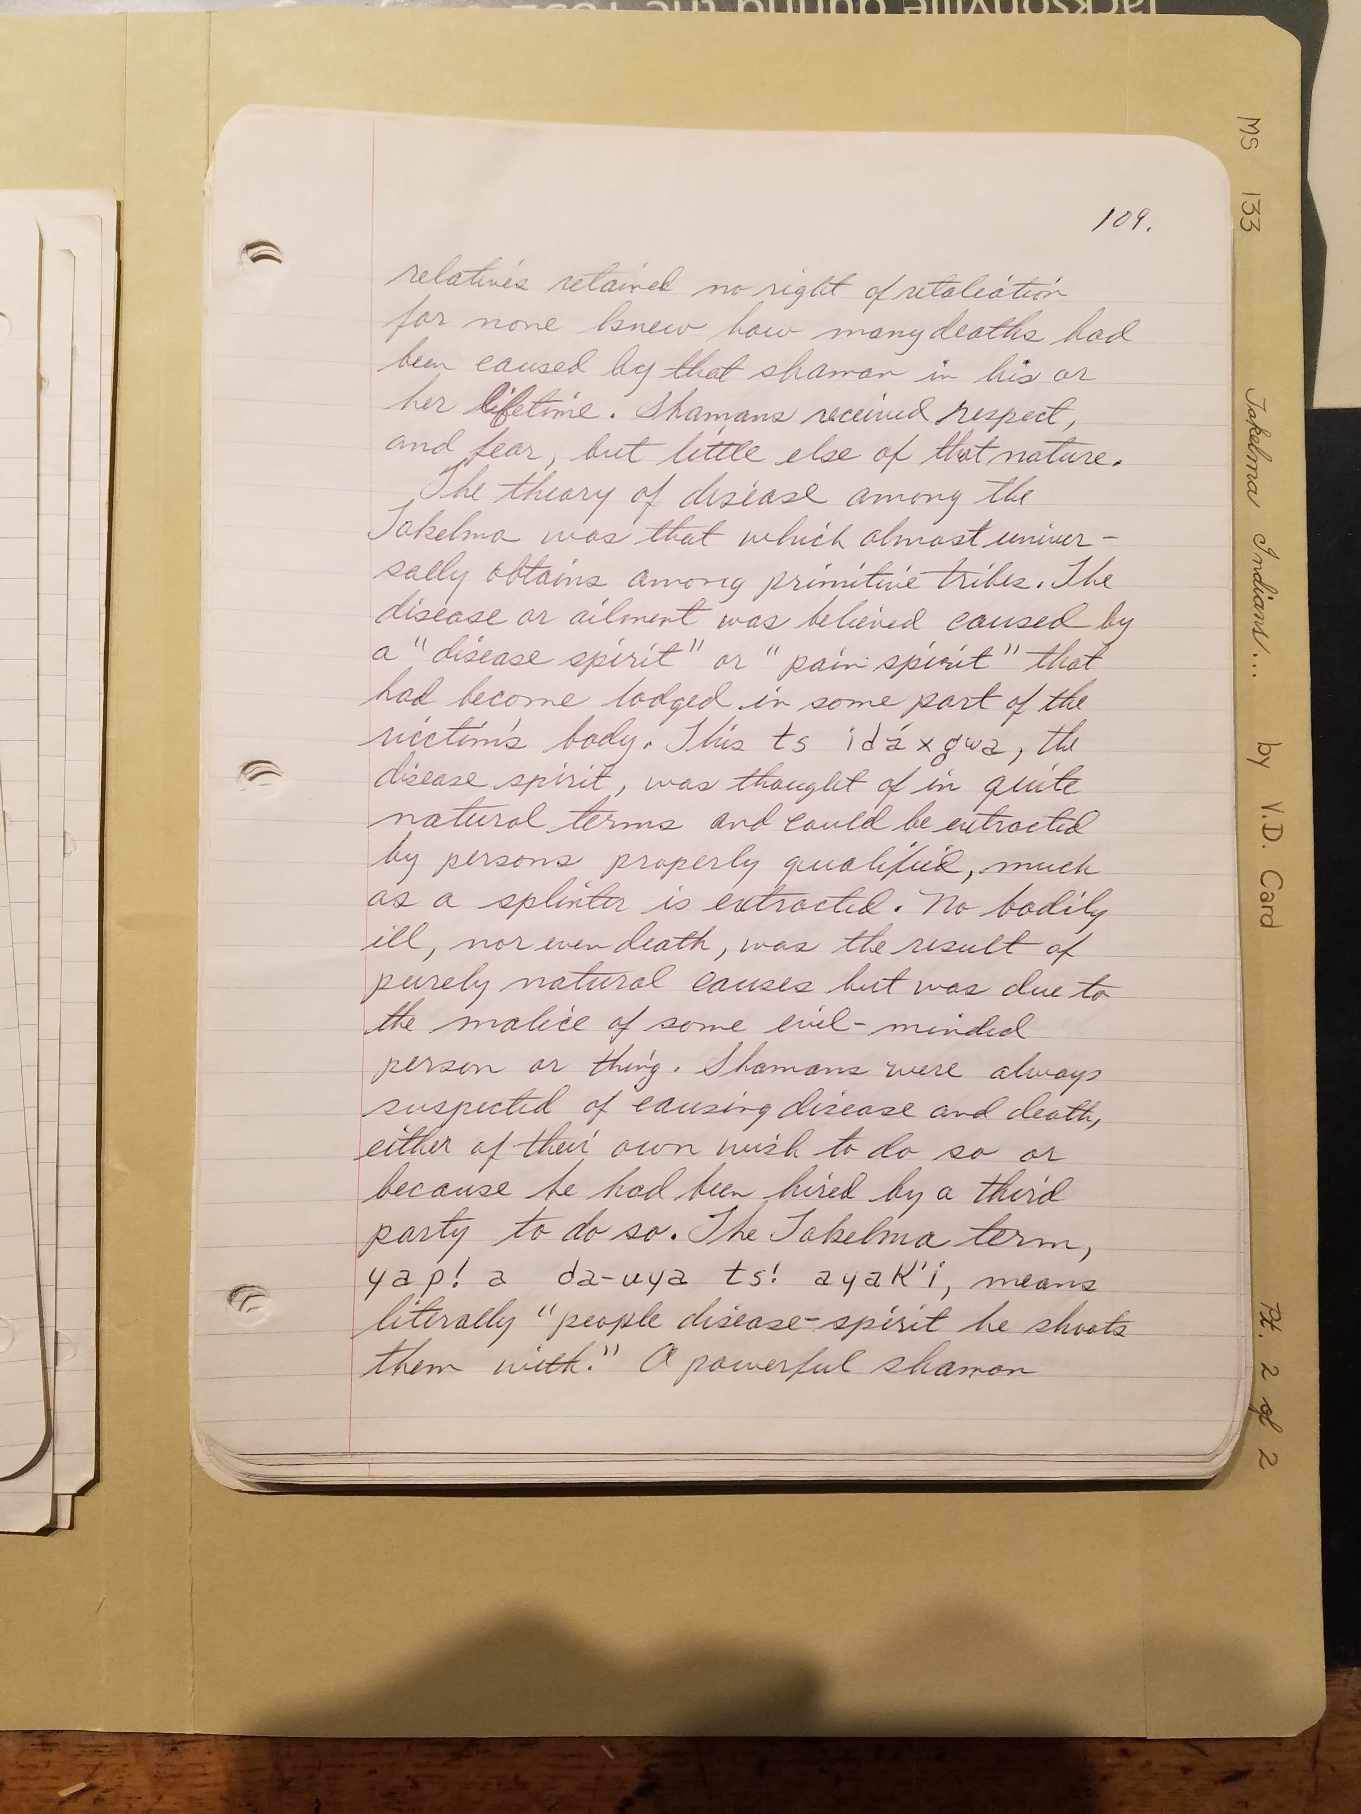 Jacksonville during the 1852
109.
relatives retained no right of retaliation
for none knew how many deaths had
been caused by that shaman in his or
her lifetime. Shamans received respect,
and fear, but little else of that nature.
The theory of disease among the
Takelma was that which almost univer-
sally obtains among primitive tribes. The
disease or ailment was believed caused by
a "disease spirit" or "pain spirit" that
had become lodged in some part of the
victim's body. This ts idáxgwa, the
disease spirit, was thought of in quite
natural terms and could be extracted
by persons properly qualified, much
as a splinter is extracted. No bodily
ill, nor even death, was the result of
purely natural causes but was due to
the malice of some evil-minded
person or thing. Shamans were always
suspected of causing disease and death,
either of their own wish to do so or
because he had been hired by a third
party to do so. The Takelma term,
yap! a da-uya ts! ayak'i, means
literally "people disease-spirit he shoots
them with." A powerful shaman
MS 133 Takelma Indians... by V.D. Card Pt. 2 of 2